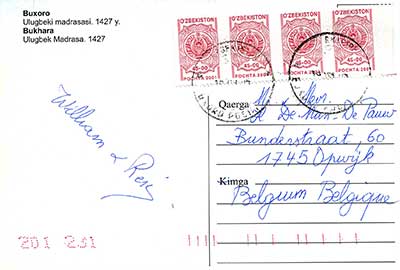 Buxoro
Ulugbeki madrasasi. 1427 y.
Bukhara
Ulugbek Madrasa. 1427
O'ZBEKISTON O'ZBEKISTON O'ZBEKISTON O'ZBEKISTON
45-00 45-00 45-00 45-00
POCHTA 2001 POCHTA 2001 POCHTA POCHTA 2001
William &
Qaerga
De Pauw
Bunderstraat, 60
1745 Opwijk
Kimga
Belgium Belgique
201 231